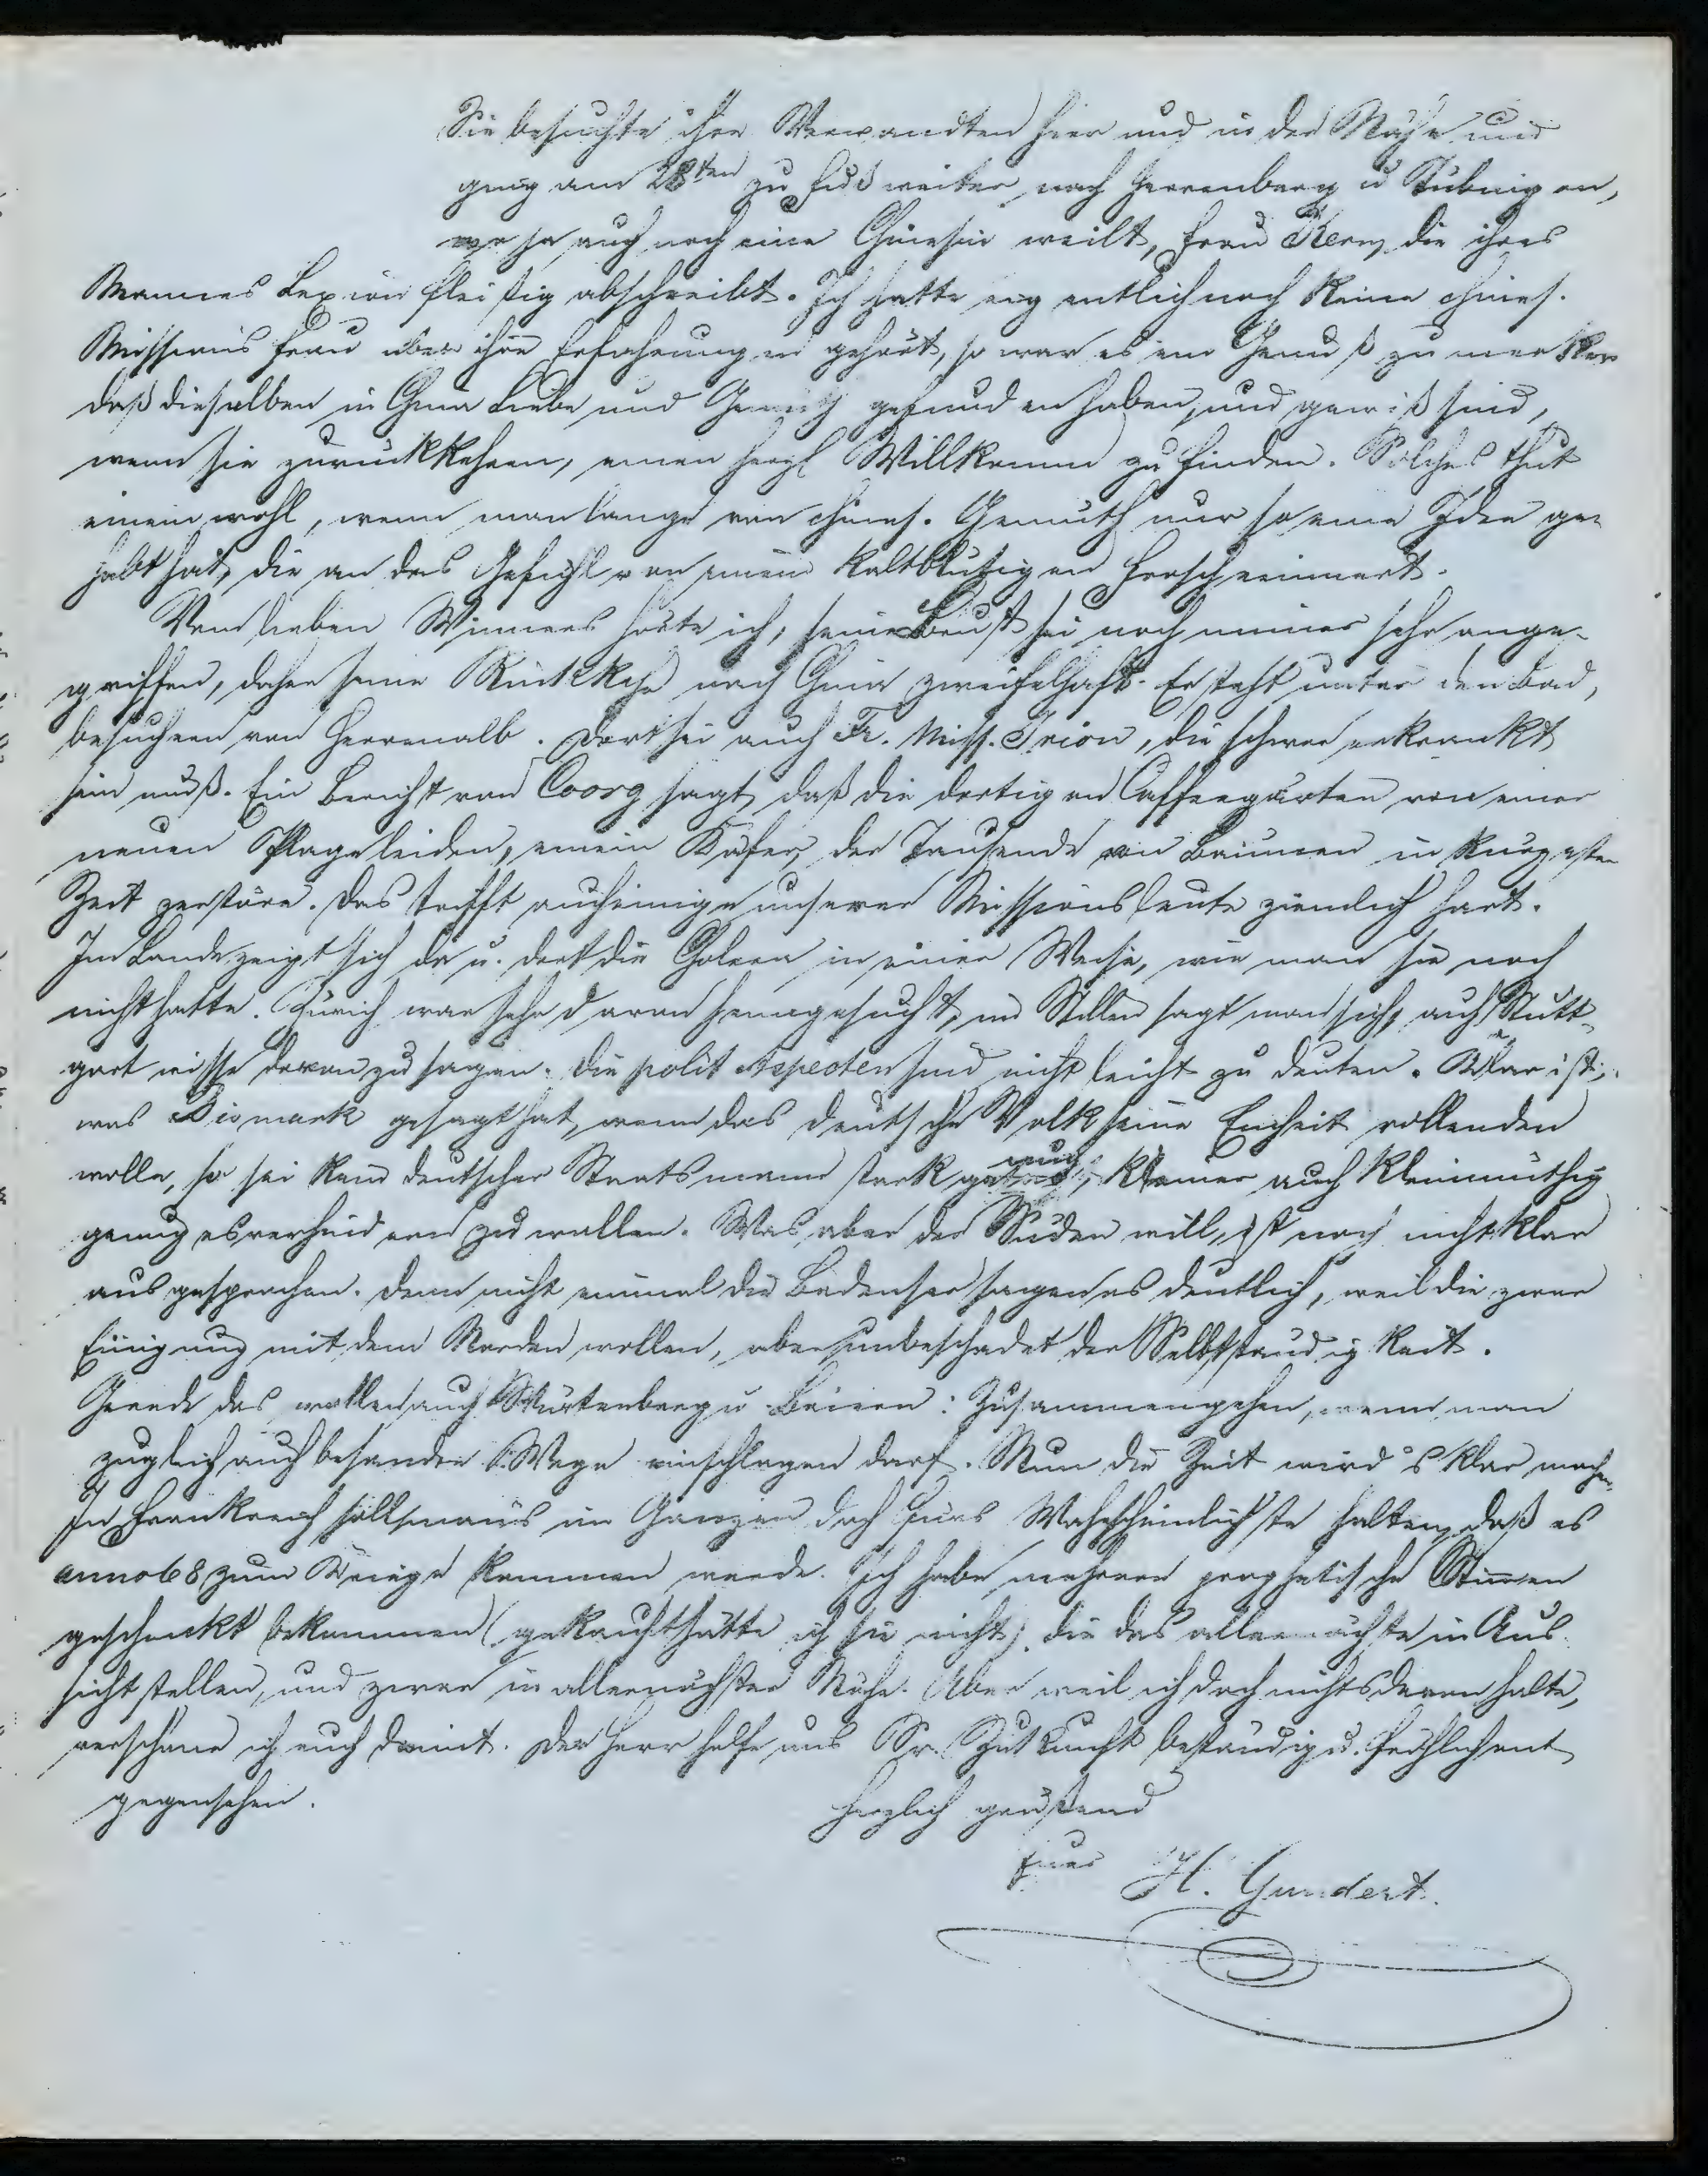 Sie besuchte ihre Verwandten hier und in der Nähe und
ging am 28ten zu Fuß weiter nach Herrenberg u Tübingen,
wo ja auch noch eine Chinesin weilt, Frau Kern, die ihres
Mannes Lexicon fleißig abschreibt. Ich hatte eigentlich noch keine chines.
Missions Frau über ihre Erfahrungen gehört, so war es ein Genuß zu merken
daß dieselben in China Liebe und gefunden haben, und gewiß sind,
wenn sie zurückkehren, einen herzl Willkomm zu finden. Solches thut
einem wohl, wenn man lange von chines. Gemüth nur so eine Idee ge-
habt hat, die an das Gefühl von einem kaltblütigen Frosch erinnert.
Vom lieben Winnes hörte ich, seine Brust sei noch immer sehr ange-
griffen, daher seine Rückkehr nach China zweifelhaft. Er steht unter den Bad,
besuchern von Herrenalb. Dort sei auch Fr. Miss. Irion, die schwer erkrankt
sein muß. Ein Bericht von Coorg sagt, daß die dortigen Caffeegärten von einer
neuen Plage leiden, einem Käfer, der Tausende von Bäumen in kürzester
Zeit zerstöre. Das trifft auch einige unserer Missionsleute ziemlich hart.
Im Lande zeigt sich da u. dort die Cholera in einer Weise, wie man sie noch
nicht hatte. Zürich war sehr daran heimgesucht, im Stillen sagt man sich, auch Stutt-
gart wisse davon zu sagen. Die polit Aspecten sind nicht leicht zu deuten. Klar ist,
was Bismark gesagt hat, wenn das deutsche Volk seine Einheit vollenden
wolle, so sei kein deutscher Staatsmann stark genug, keiner auch kleinmüthig
genug es verhindern zu wollen. Was aber der Süden will, ist noch nicht klar
ausgesprochen. Denn nicht einmal die Badenser sagen es deutlich, weil die zwar
Einigung mit dem Norden wollen, aber unbeschadet der Selbstständigkeit.
Gerade das wollen auch Würtenberg u. Baiern: Zusammengehen, wenn man
zugleich auch besondere Wege einschlagen darf. Nun die Zeit wird's klar machen.
In Frankreich soll man's im Ganzen doch fürs Wahrscheinlichste halten, daß es
anno 68 zum Kriege kommen werde. Ich habe mehrere prophetische Stimmen
geschenkt bekommen (gekauft hätte ich sie nicht), die das allernächste in Aus-
sicht stellen, und zwar in allernächster Nähe. Aber weil ich doch nichts davon halte,
verschone ich euch damit. Der Herr helfe uns Sr. Zukunft beständig u. fröhlich ent
gegensehen.
Herzlich grüßend
Euer H. Gundert.